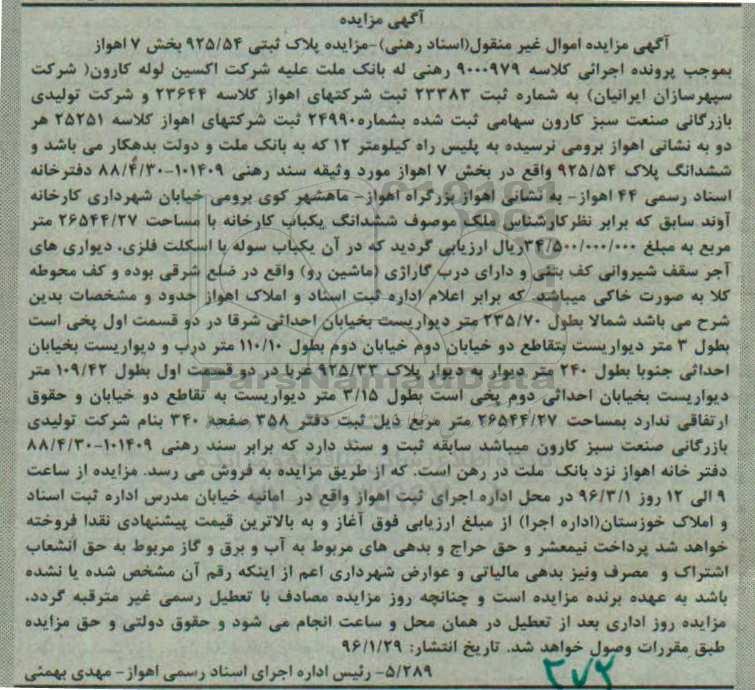 آگهی مزایده
آگهی مزایده اموال غیر منقول(اسناد رهنی)-مزایده پلاک ثبتی ۹۲۵/۵۴ بخش ۷ اهواز
بموجب پرونده اجرائی کلاسه ۹۰۰۰۹۷۹ رهنی له بانک ملت علیه شرکت اکسین لوله کارون( شرکت
سپهرسازان ایرانیان) به شماره ثبت ۲۳۳۸۳ ثبت شرکتهای اهواز کلاسه ۲۳۶۴۴ و شرکت تولیدی
بازرگانی صنعت سبز کارون سهامی ثبت شده بشماره۲۴۹۹۰ ثبت شرکتهای اهواز کلاسه ۲۵۲۵۱ هر
دو به نشانی اهواز برومی نرسیده به پلیس راه کیلومتر ۱۲ که به بانک ملت و دولت بدهکار می باشد و
ششدانگ پلاک ۹۲۵/۵۴ واقع در بخش ۷ اهواز مورد وثیقه سند رهنی ۱۰۱۴۰۹-۸۸/۴/۳۰ دفترخانه
اسناد رسمی ۴۴ اهواز- به نشانی اهواز بزرگراه اهواز- ماهشهر کوی برومی خیابان شهرداری کارخانه
آوند سابق که برابر نظر کارشناس ملک موصوف ششدانگ یکباب کارخانه با مساحت ۲۶۵۴۴/۲۷ متر
مربع به مبلغ ۳۴/۵۰۰/۰۰۰/۰۰۰ریال ارزیابی گردید که در آن یکباب سوله با اسکلت فلزی، دیواری های
آجر سقف شیروانی کف بتنی و دارای درب گاراژی (ماشین رو) واقع در ضلع شرقی بوده و کف محوطه
کلا به صورت خاکی میباشد. که برابر اعلام اداره ثبت اسناد و املاک اهواز حدود و مشخصات بدین
شرح می باشد شمالا بطول ۲۳۵/۷۰ متر دیواریست بخیابان احداثی شرقا در دو قسمت اول پخی است
بطول ۳ متر دیواریست بتقاطع دو خیابان دوم خیابان دوم بطول ۱۱۰/۱۰ متر درب و دیواریست بخیابان
احداثی جنوبا بطول ۲۴۰ متر دیوار به دیوار پلاک ۹۲۵/۳۳ غربا در دو قسمت اول بطول ۱۰۹/۴۲ متر
دیواریست بخیابان احداثی دوم پخی است بطول ۳/۱۵ متر دیواریست به تقاطع دو خیابان و حقوق
ارتفاقی ندارد بمساحت ۲۶۵۴۴/۲۷ متر مربع ذیل ثبت دفتر ۳۵۸ صفحه ۳۴۰ بنام شرکت تولیدی
بازرگانی صنعت سبز کارون میباشد سابقه ثبت و سند دارد که برابر سند رهنی ۱۰۱۴۰۹-۸۸/۴/۳۰
دفتر خانه اهواز نزد بانک ملت در رهن است. که از طریق مزایده به فروش می رسد. مزایده از ساعت
۹ الی ۱۲ روز ۹۶/۳/۱ در محل اداره اجرای ثبت اهواز واقع در امانیه خیابان مدرس اداره ثبت اسناد
و املاک خوزستان(اداره اجرا) از مبلغ ارزیابی فوق آغاز و به بالاترین قیمت پیشنهادی نقدا فروخته
خواهد شد پرداخت نیمعشر و حق حراج و بدهی های مربوط به آب و برق و گاز مربوط به حق انشعاب
اشتراک و مصرف ونیز بدهی مالیاتی و عوارض شهرداری اعم از اینکه رقم آن مشخص شده یا نشده
باشد به عهده برنده مزایده است و چنانچه روز مزایده مصادف با تعطیل رسمی غیر مترقبه گردد.
مزایده روز اداری بعد از تعطیل در همان محل و ساعت انجام می شود و حقوق دولتی و حق مزایده
طبق مقررات وصول خواهد شد. تاریخ انتشار: ۹۶/۱/۲۹
۵/۲۸۹- رئیس اداره اجرای اسناد رسمی اهواز- مهدی بهمئی
ParsNamadData